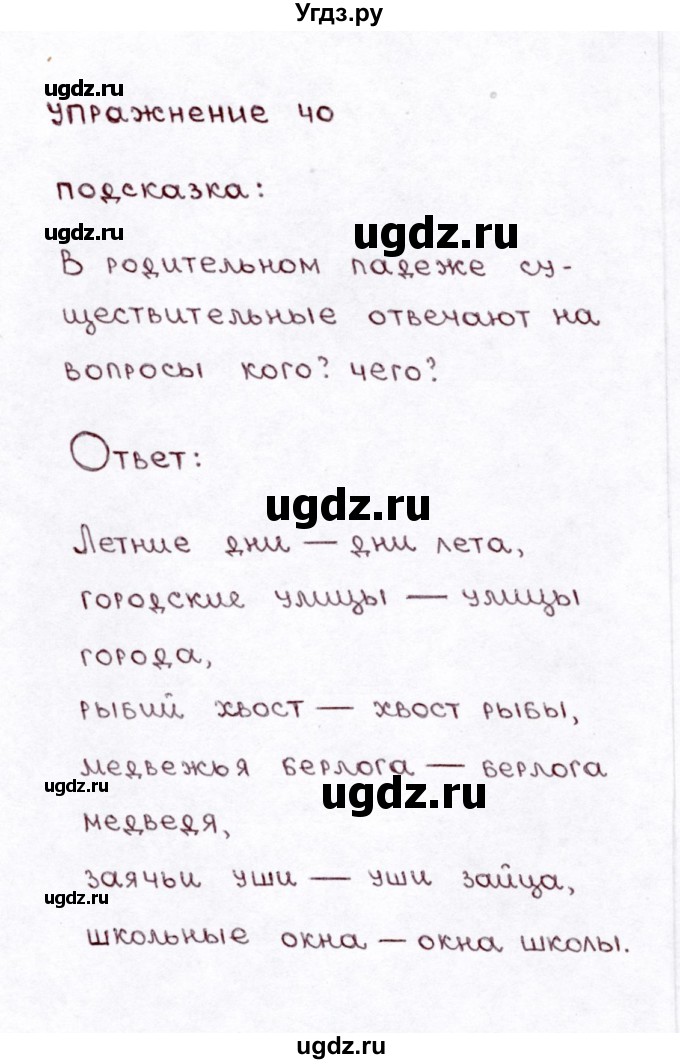 Угдз.ру
ugdz.ru
Упражнение 40
подсказка:
ugdz.ru
ugdz.ru
В родительном падеже су-
ществительные отвечают на
вопросы кого? чего?
Ответ:
ugdz.ru
Летние дни — дни лета,
городские улицы — улицы
города,
рыбий хвост — хвост рыбы,
медвежья берлога — берлога
ugdz.ru
ugdz.ru
медведя,
заячьи уши — уши зайца,
ugdz.ru
школьные окна — окна школы.
Угдз.ру